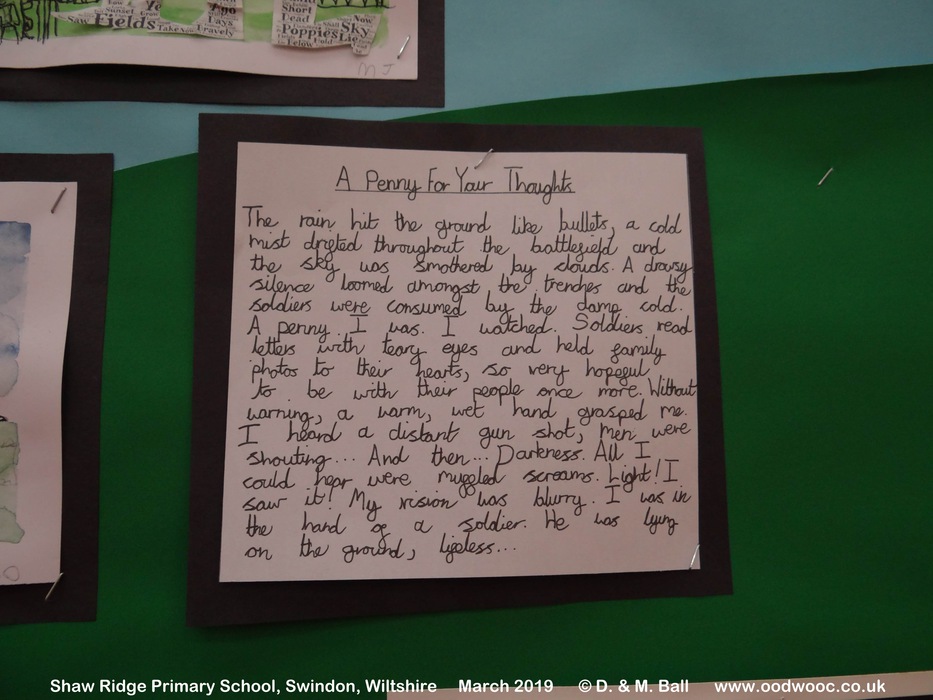 Short
Now
Fields
Taken
Bravely
Dead
Poppies
Sky
Lie
Below
MJ
A Penny For Your Thoughts
The rain hit the ground like bullets, a cold
mist drifted throughout the battlefield and
the sky was smothered by clouds. A drowsy
silence loomed amongst the trenches and the
soldiers were consumed by the damp cold.
A penny I was. I watched. Soldiers read
letters with teary eyes and held family
photos to their hearts, so very hopeful
to be with their people once more. Without
warning, a warm, wet hand grasped me.
I heard a distant gun shot, men were
shouting... And then... Darkness. All I
could hear were muffled screams. Light! I
saw it! My vision was blurry. I was in
the hand of a soldier. He was lying
on the ground, lifeless...
Shaw Ridge Primary School, Swindon, Wiltshire March 2019 © D. & M. Ball www.oodwooc.co.uk